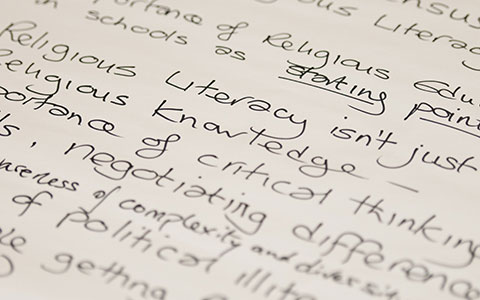 nsensus
ious Literacy
portance of Religious Educ
in schools as starting point
Religious Literacy isn't just
Religious Knowledge –
portance of critical thinking
ls, negotiating difference
areness of complexity and diversi
of political illite
le getting